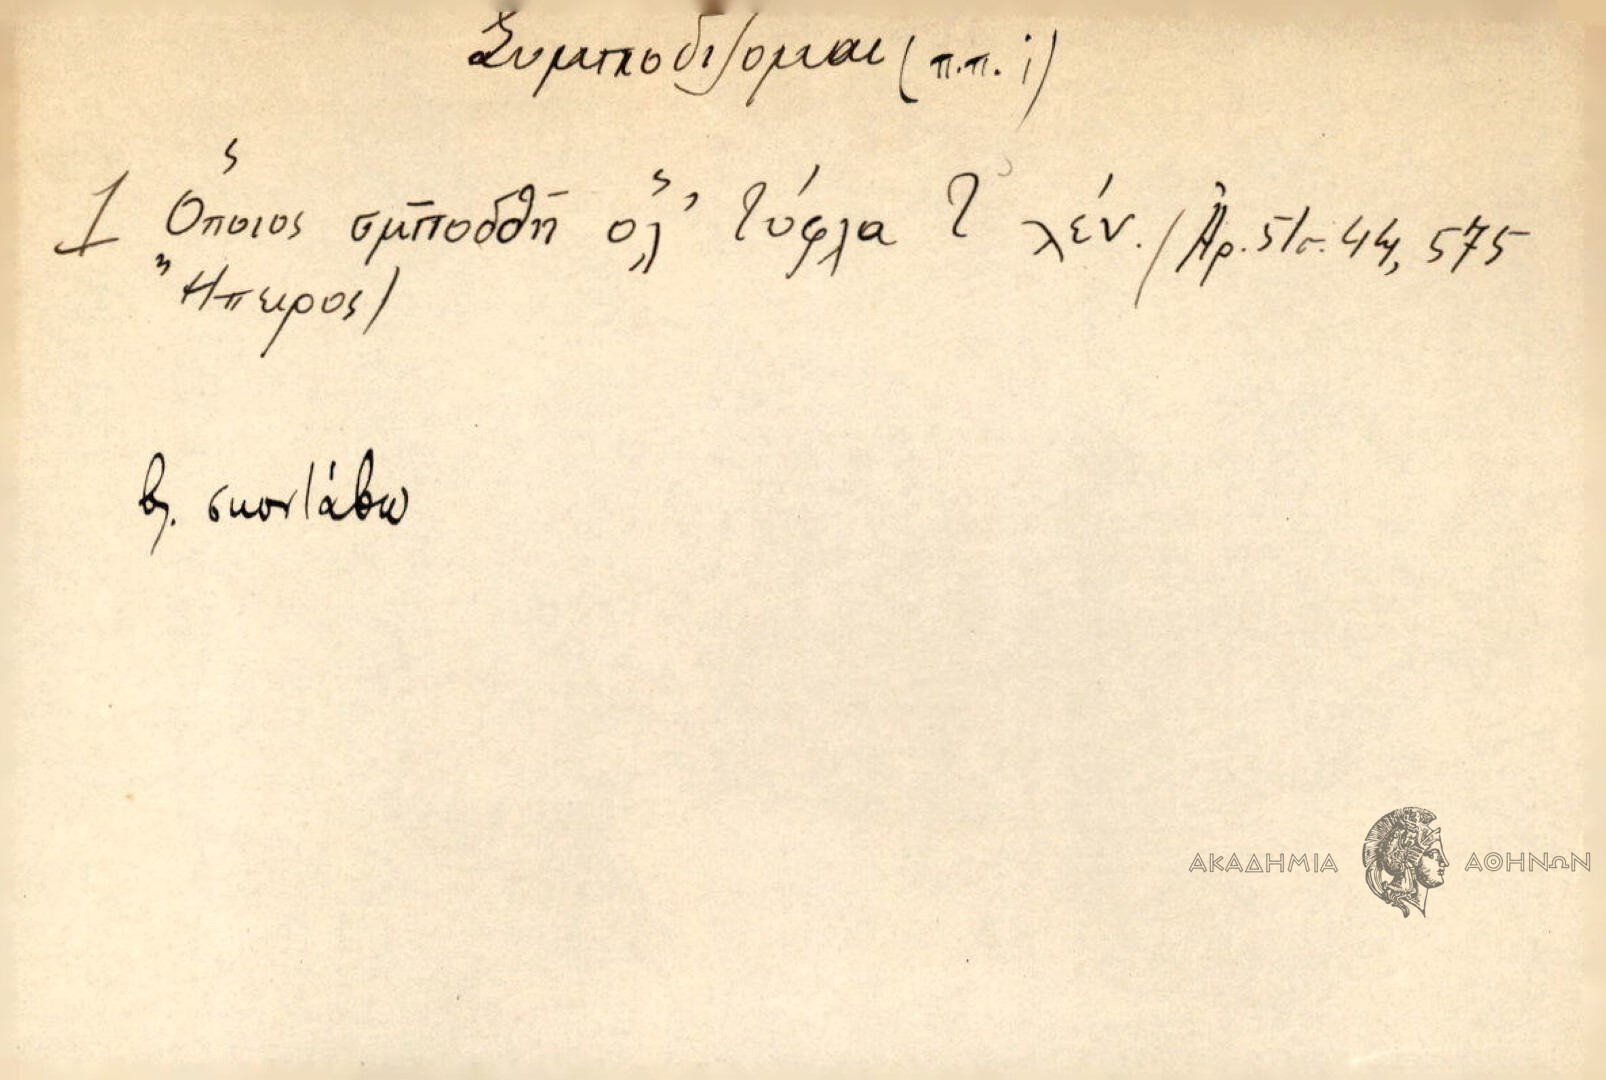 Συμποδίζομαι (π.π. i)
1 Ὅποιος σμποδθῆ ὅλ' τύφλα τ' λέν. (Ἀρ. 5/σ. 44, 575
Ἤπειρος)
βλ. σκοντάβω
ΑΚΑΔΗΜΙΑ ΑΘΗΝΩΝ